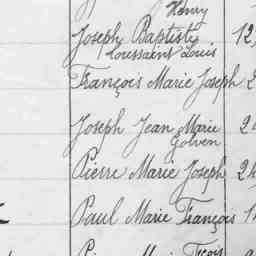 Henry
Joseph Baptiste 12
Toussaint Louis
François Marie Joseph 2
Joseph Jean Marie 2
Golven
Pierre Marie Joseph 24
Paul Marie François 1
Pierre Marie